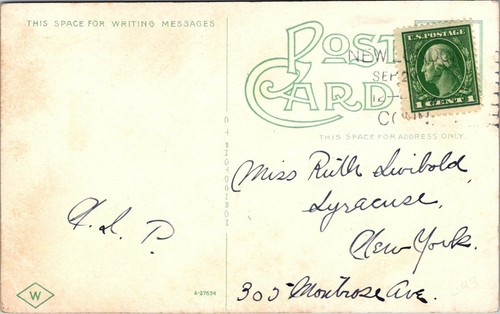 THIS SPACE FOR WRITING MESSAGES
POST
CARD
NEW
SEP
CONN.
U.S. POSTAGE
1 CENT 1
THIS SPACE FOR ADDRESS ONLY.
Miss Ruth Swibold
Syracuse,
New-York.
305 Montrose Ave.
H. L. P.
W
A-27634